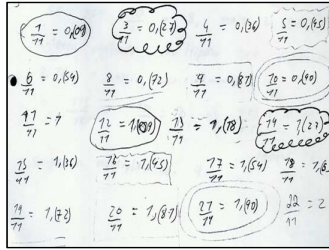 1/11 = 0,(09) 3/11 = 0,(27) 4/11 = 0,(36) 5/11 = 0,(45)
6/11 = 0,(54) 8/11 = 0,(72) 9/11 = 0,(81) 10/11 = 0,(90)
11/11 = 1 12/11 = 1,(09) 13/11 = 1,(18) 14/11 = 1,(27)
15/11 = 1,(36) 16/11 = 1,(45) 17/11 = 1,(54) 18/11 = 1,(6
19/11 = 1,(72) 20/11 = 1,(81) 21/11 = 1,(90) 22/11 = 2